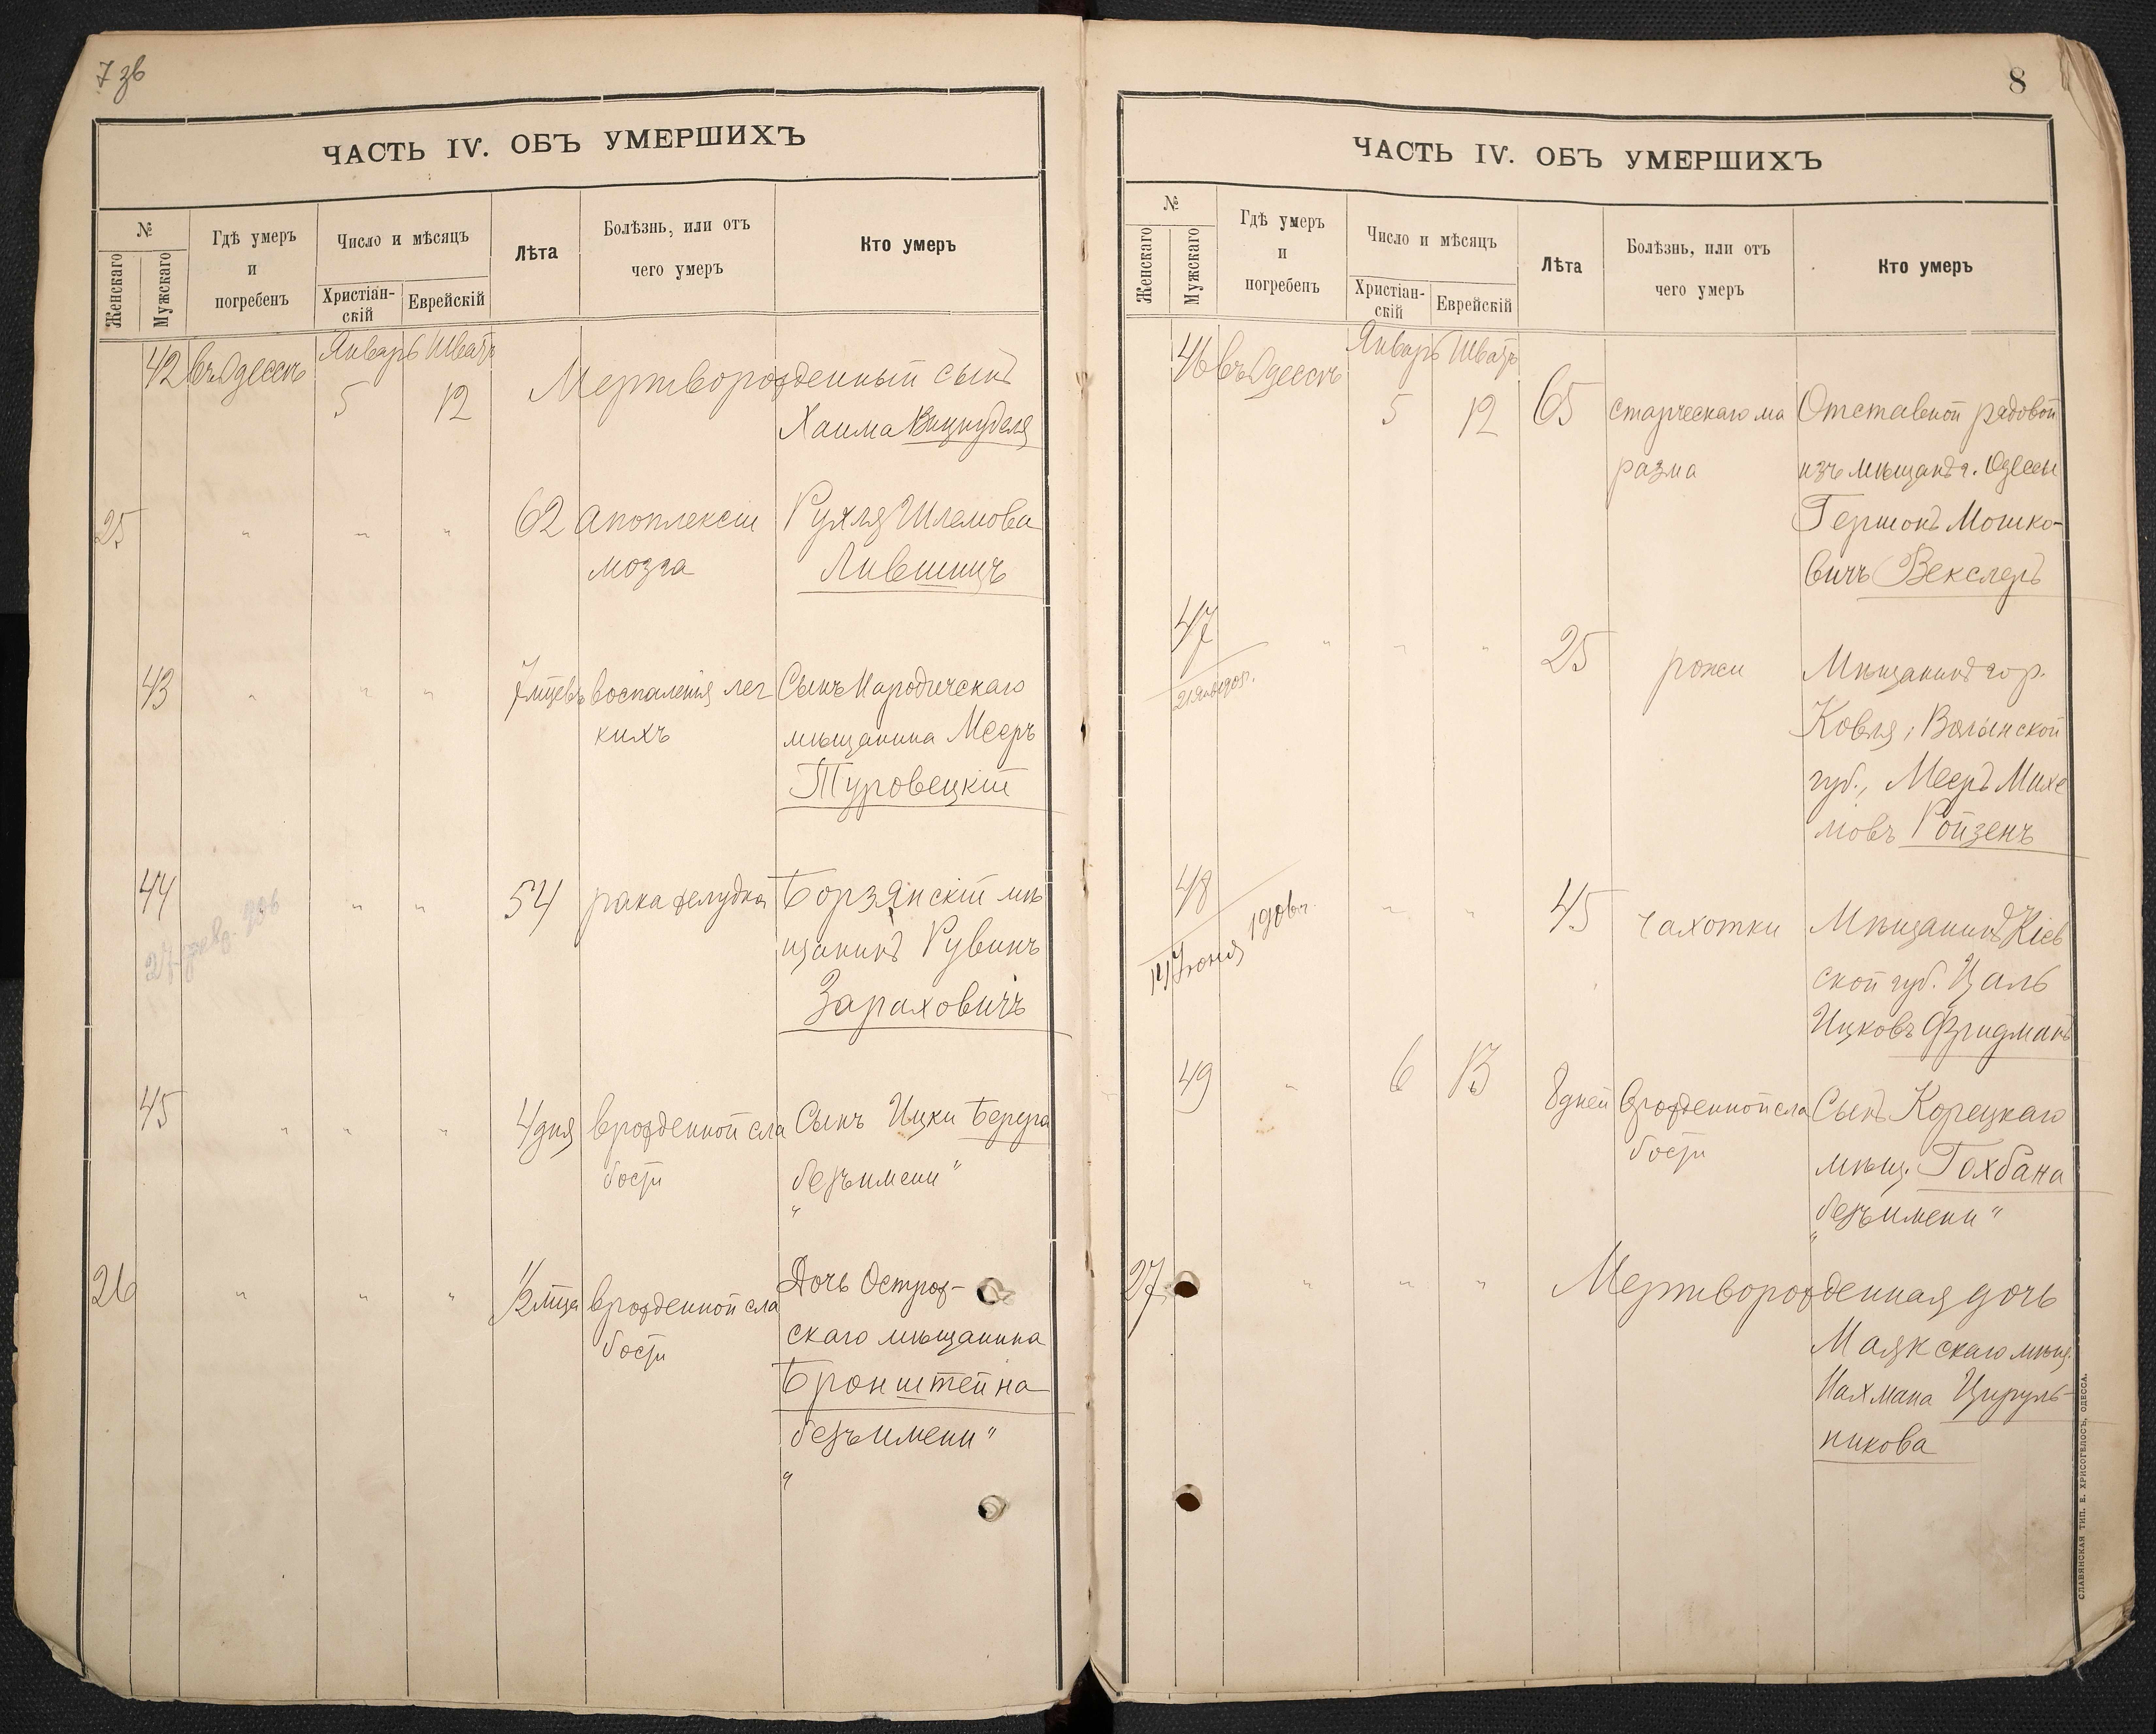 7 зв
ЧАСТЬ IV. ОБЪ УМЕРШИХЪ
№
Женскаго
Мужскаго
Гдѣ умеръ
и
погребенъ
Число и мѣсяцъ
Христіан-
скій
Еврейскій
Лѣта
Болѣзнь, или отъ
чего умеръ
Кто умеръ
42 въ Одессѣ Январь Шватъ
5 12 Мертворожденный сынъ
Хаима
25 " " " 62 апоплексіи Рухля Шлемова
мозга Лившицъ
43 " " " 7 мцевъ воспаленія лег Сынъ Народичскаго
кихъ мѣщанина Мееръ
Туровецкій
44 " " " 54 рака желудка Борзянскій мѣ
27 февр. 906
щанинъ Рувинъ
Зараховичъ
45 " " " 4 дня врожденной сла Сынъ Ицки Берера
бости „безъ имени“
26 " " " 1/2 мца врожденной сла Дочь Острож-
бости скаго мѣщанина
Бронштейна
„безъ имени“
8
ЧАСТЬ IV. ОБЪ УМЕРШИХЪ
№
Женскаго
Мужскаго
Гдѣ умеръ
и
погребенъ
Число и мѣсяцъ
Христіан-
скій
Еврейскій
Лѣта
Болѣзнь, или отъ
чего умеръ
Кто умеръ
46 въ Одессѣ Январь Шватъ
5 12 65 старческаго ма Отставной рядовой
разма изъ мѣщанъ г. Одессы
Гершонъ Мошко-
вичъ Векслеръ
47 " " " 25 рожи Мѣщанинъ гор.
21 Янв 1905г.
Ковля, Волынской
губ., Мееръ Михе
мовъ Ройзенъ
48 " " 45 чахотки Мѣщанинъ Кіев
14 Іюня 1906г.
ской губ. Цаль
Ицковъ Фридманъ
49 " 6 13 8 дней врожденной сла Сынъ Корецкаго
бости мѣщ. Гохбана
„безъ имени“
27 " " " Мертворожденная дочь
Маякскаго мѣщ.
Нахмана Цируль-
никова
СЛАВЯНСКАЯ ТИП. Е. ХРИСОГЕЛОСЪ, ОДЕССА.